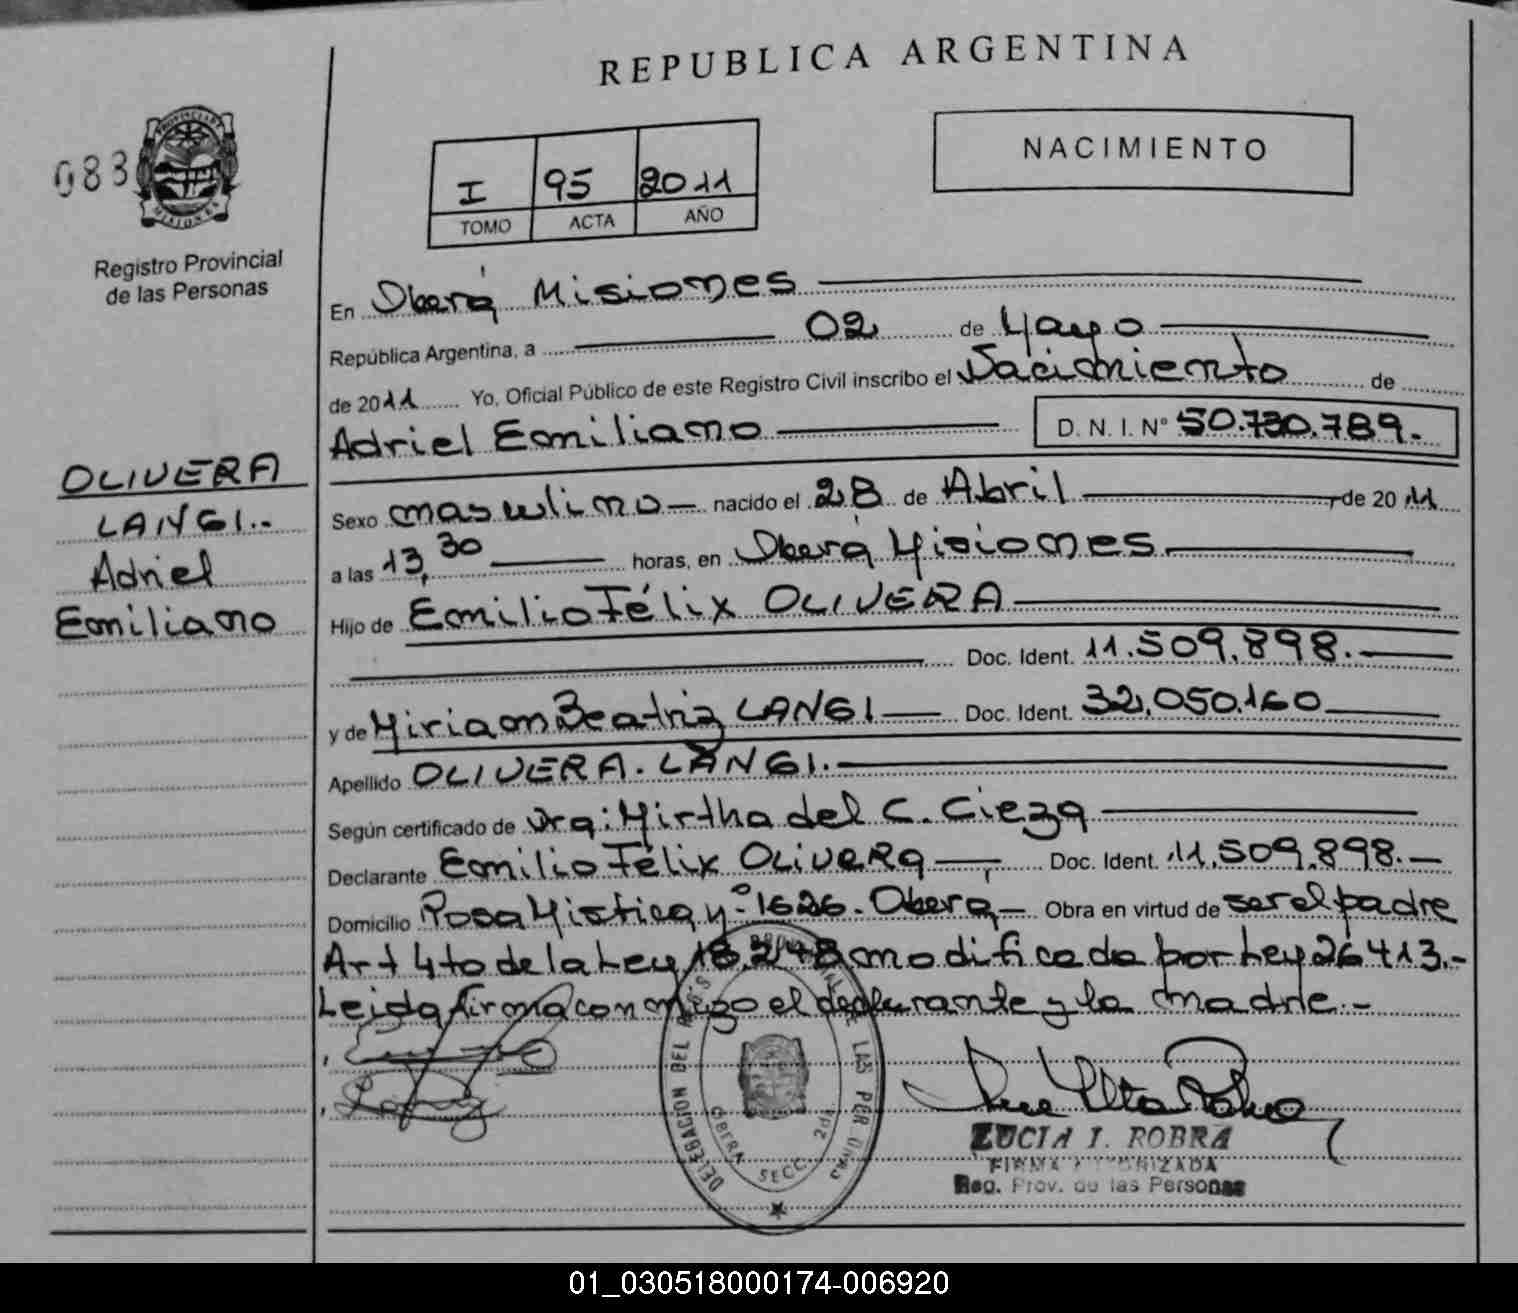 REPUBLICA ARGENTINA
NACIMIENTO
083
PROVINCIA DE MISIONES
Registro Provincial
de las Personas
I 95 2011
TOMO ACTA AÑO
En Oberá Misiones
República Argentina, a 02 de Mayo
de 2011 Yo, Oficial Público de este Registro Civil inscribo el Nacimiento de
Adriel Emiliano D. N. I. Nº 50.730.789.
OLIVERA
LANGI.-
Adriel
Emiliano
Sexo masculino nacido el 28 de Abril de 2011
a las 13,30 horas, en Oberá Misiones
Hijo de Emilio Félix OLIVERA
Doc. Ident. 11.509.898.
y de Miriam Beatriz LANGI Doc. Ident. 32.050.160
Apellido OLIVERA. LANGI.
Según certificado de Dra: Mirtha del C. Cieza
Declarante Emilio Félix OLIVERA Doc. Ident. 11.509.898.
Domicilio Rosa Mistica nº 1626. Obera Obra en virtud de ser el padre
Art 4to de la Ley 18.248 modificado por Ley 26413.-
Leida firma con migo el declarante y la madre.-
DELEGACION DEL LAS PER
OBERA SECC. 2da
LUCIA I. ROBRA
FIRMA AUTORIZADA
Reg. Prov. de las Personas
01_030518000174-006920